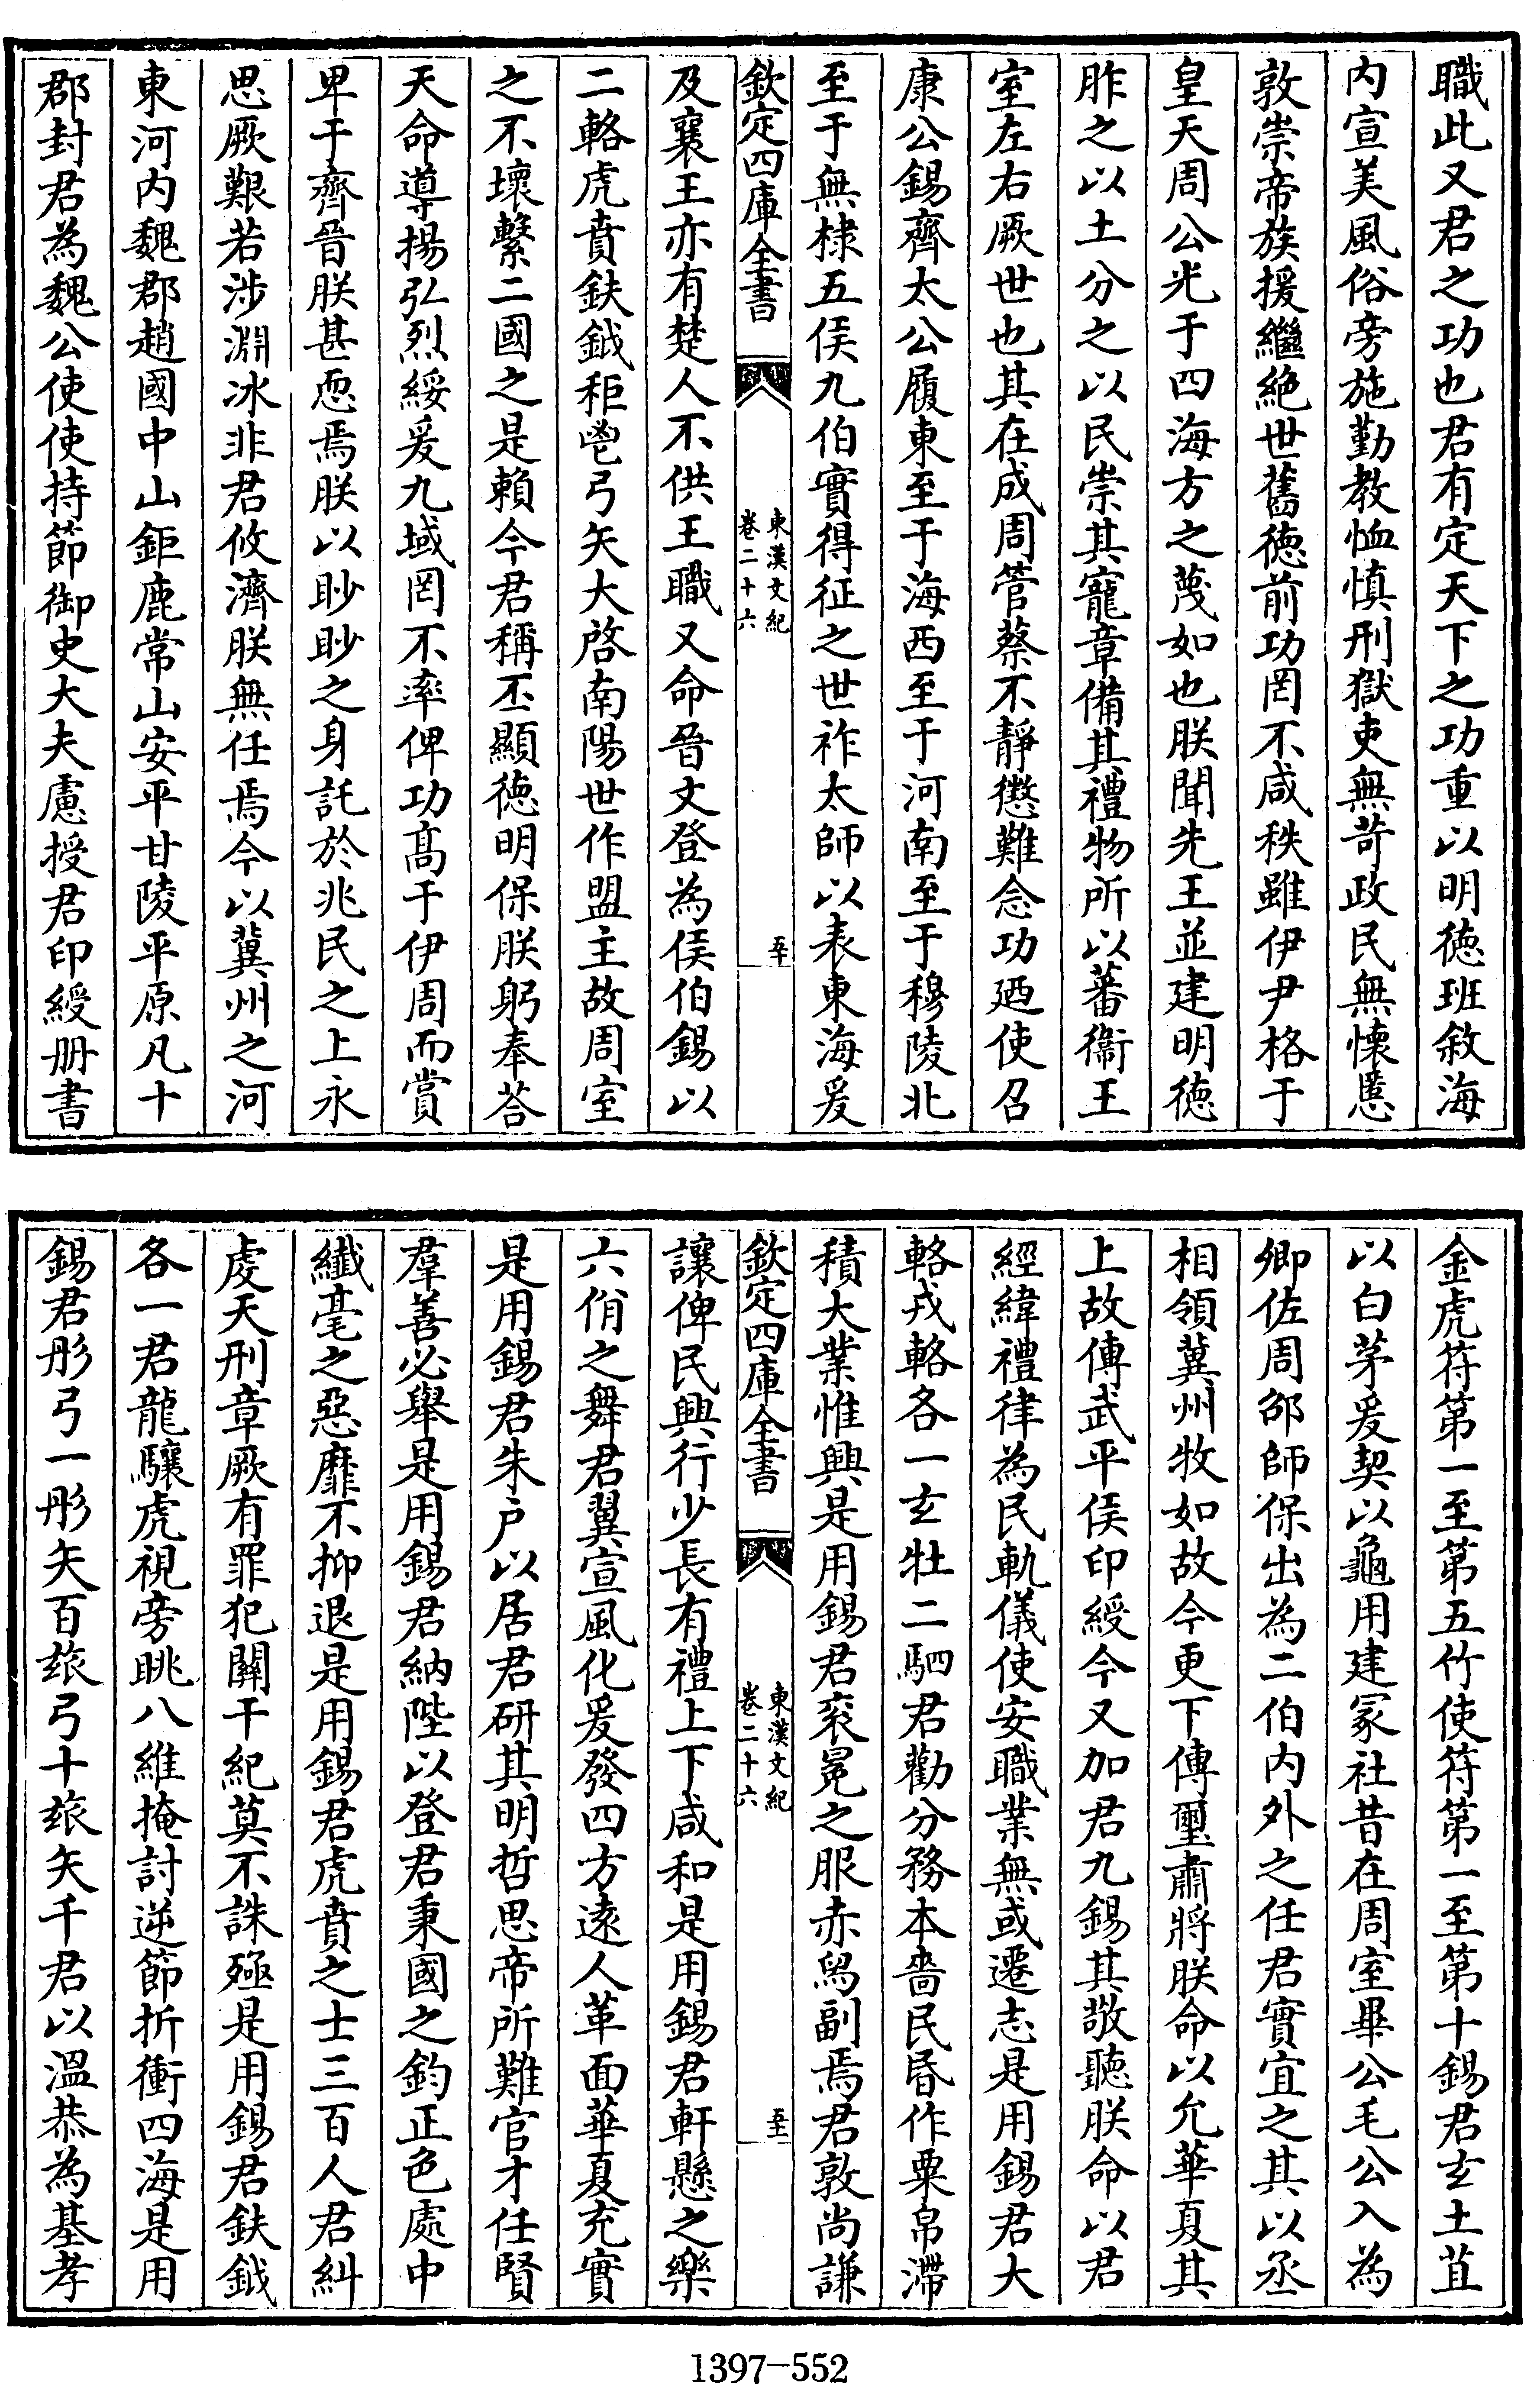 職此又君之功也君有定天下之功重以明徳班敘海
内宣美風俗旁施勤教恤慎刑獄吏無苛政民無懐慝
敦崇帝族援繼絶世舊徳前功罔不咸秩雖伊尹格于
皇天周公光于四海方之蔑如也朕聞先王並建明徳
胙之以土分之以民崇其寵章備其禮物所以蕃衞王
室左右厥世也其在成周管蔡不靜懲難念功廼使召
康公錫齊太公履東至于海西至于河南至于穆陵北
至于無棣五侯九伯實得征之世祚太師以表東海爰
欽定四庫全書
東漢文紀
卷二十六
五十
及襄王亦有楚人不供王職又命晉文登為侯伯錫以
二輅虎賁鈇鉞秬鬯弓矢大啓南陽世作盟主故周室
之不壞繫二國之是賴今君稱丕顯徳明保朕躬奉荅
天命導揚弘烈綏爰九域罔不率俾功髙于伊周而賞
卑于齊晉朕甚恧焉朕以眇眇之身託於兆民之上永
思厥艱若涉淵冰非君攸濟朕無任焉今以冀州之河
東河内魏郡趙國中山鉅鹿常山安平甘陵平原凡十
郡封君為魏公使使持節御史大夫慮授君印綬册書
金虎符第一至第五竹使符第一至第十錫君玄土苴
以白茅爰契以龜用建冡社昔在周室畢公毛公入為
卿佐周邵師保出為二伯内外之任君實宜之其以丞
相領冀州牧如故今更下傳璽肅將朕命以允華夏其
上故傳武平侯印綬今又加君九錫其敬聽朕命以君
經緯禮律為民軌儀使安職業無或遷志是用錫君大
輅戎輅各一玄牡二駟君勸分務本嗇民昏作粟帛滯
積大業惟興是用錫君衮冕之服赤舄副焉君敦尚謙
欽定四庫全書
東漢文紀
卷二十六
五十一
讓俾民興行少長有禮上下咸和是用錫君軒懸之樂
六佾之舞君翼宣風化爰發四方逺人革面華夏充實
是用錫君朱户以居君研其明哲思帝所難官才任賢
羣善必舉是用錫君納陛以登君秉國之鈞正色處中
纎毫之惡靡不抑退是用錫君虎賁之士三百人君糾
虔天刑章厥有罪犯闗干紀莫不誅殛是用錫君鈇鉞
各一君龍驤虎視旁眺八維掩討逆節折衝四海是用
錫君彤弓一彤矢百玈弓十玈矢千君以溫恭為基孝
1397-552